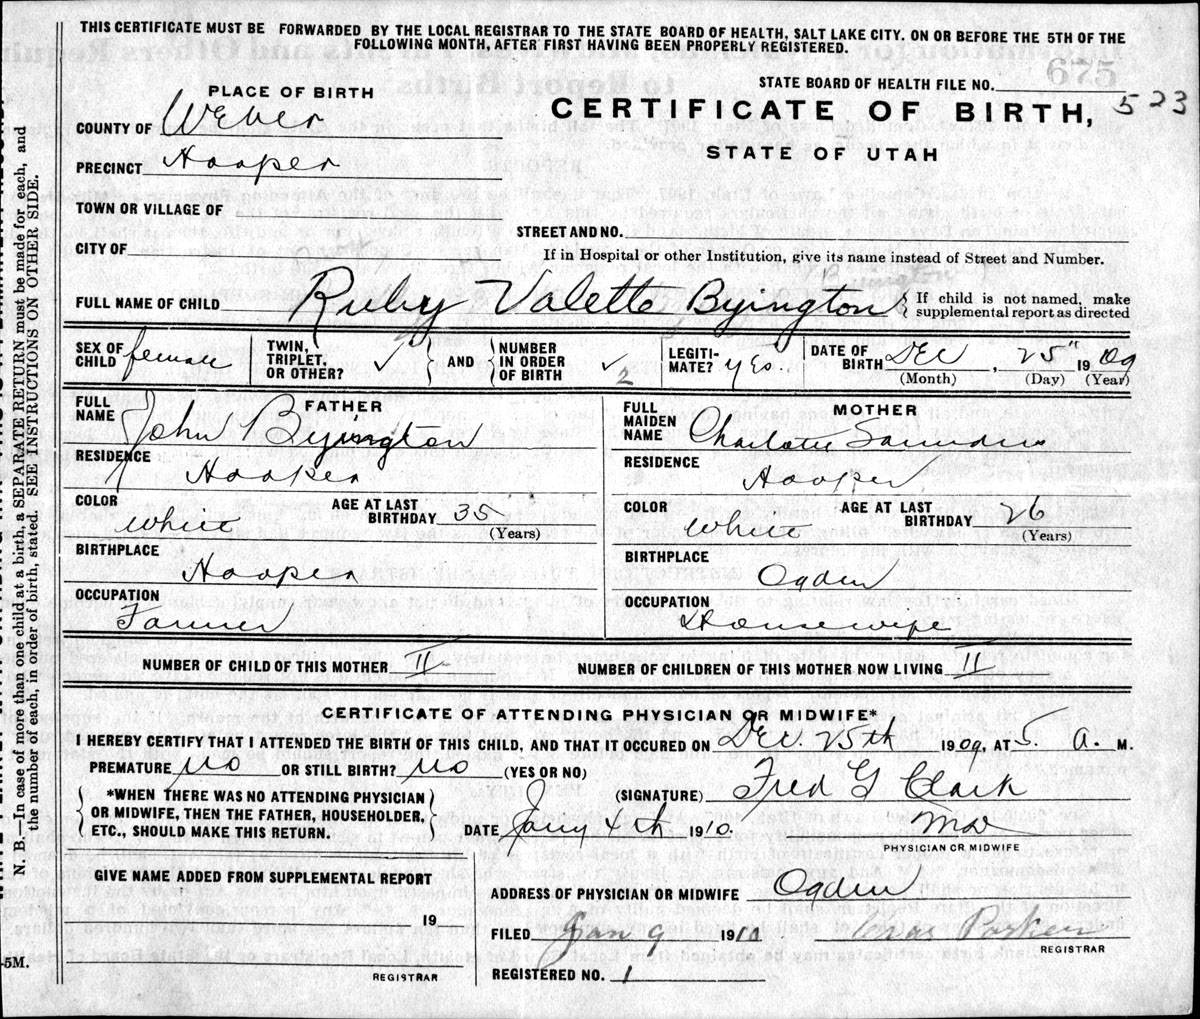 THIS CERTIFICATE MUST BE FORWARDED BY THE LOCAL REGISTRAR TO THE STATE BOARD OF HEALTH, SALT LAKE CITY. ON OR BEFORE THE 5TH OF THE
FOLLOWING MONTH, AFTER FIRST HAVING BEEN PROPERLY REGISTERED.
675
STATE BOARD OF HEALTH FILE NO.
PLACE OF BIRTH
CERTIFICATE OF BIRTH, 523
COUNTY OF Weber
STATE OF UTAH
PRECINCT Hooper
TOWN OR VILLAGE OF
STREET AND NO.
CITY OF
If in Hospital or other Institution, give its name instead of Street and Number.
FULL NAME OF CHILD Ruby Valette Byington { If child is not named, make
supplemental report as directed
SEX OF CHILD female
TWIN, TRIPLET, OR OTHER? ✓
AND
NUMBER IN ORDER OF BIRTH ✓ 2
LEGITIMATE? yes.
DATE OF BIRTH Dec, 25" 1909
(Month) (Day) (Year)
FATHER
FULL NAME John Byington
RESIDENCE
Hooper
COLOR White
AGE AT LAST BIRTHDAY 35
(Years)
BIRTHPLACE
Hooper
OCCUPATION
Farmer
MOTHER
FULL MAIDEN NAME Charlotte Saunders
RESIDENCE
Hooper
COLOR White
AGE AT LAST BIRTHDAY 26
(Years)
BIRTHPLACE
Ogden
OCCUPATION
Housewife
NUMBER OF CHILD OF THIS MOTHER II NUMBER OF CHILDREN OF THIS MOTHER NOW LIVING II
CERTIFICATE OF ATTENDING PHYSICIAN OR MIDWIFE*
I HEREBY CERTIFY THAT I ATTENDED THE BIRTH OF THIS CHILD, AND THAT IT OCCURED ON Dec. 25th 1909, AT 5. a. M.
PREMATURE no OR STILL BIRTH? no (YES OR NO)
*WHEN THERE WAS NO ATTENDING PHYSICIAN
OR MIDWIFE, THEN THE FATHER, HOUSEHOLDER,
ETC., SHOULD MAKE THIS RETURN.
(SIGNATURE) Fred G Clark
MD
PHYSICIAN OR MIDWIFE
DATE, Jany 4th 1910.
GIVE NAME ADDED FROM SUPPLEMENTAL REPORT
19
REGISTRAR
ADDRESS OF PHYSICIAN OR MIDWIFE Ogden
FILED Jan 9 1910 Parker
REGISTRAR
REGISTERED NO. 1
N. B.—In case of more than one child at a birth, a SEPARATE RETURN must be made for each, and
the number of each, in order of birth, stated. SEE INSTRUCTIONS ON OTHER SIDE.
-5M.